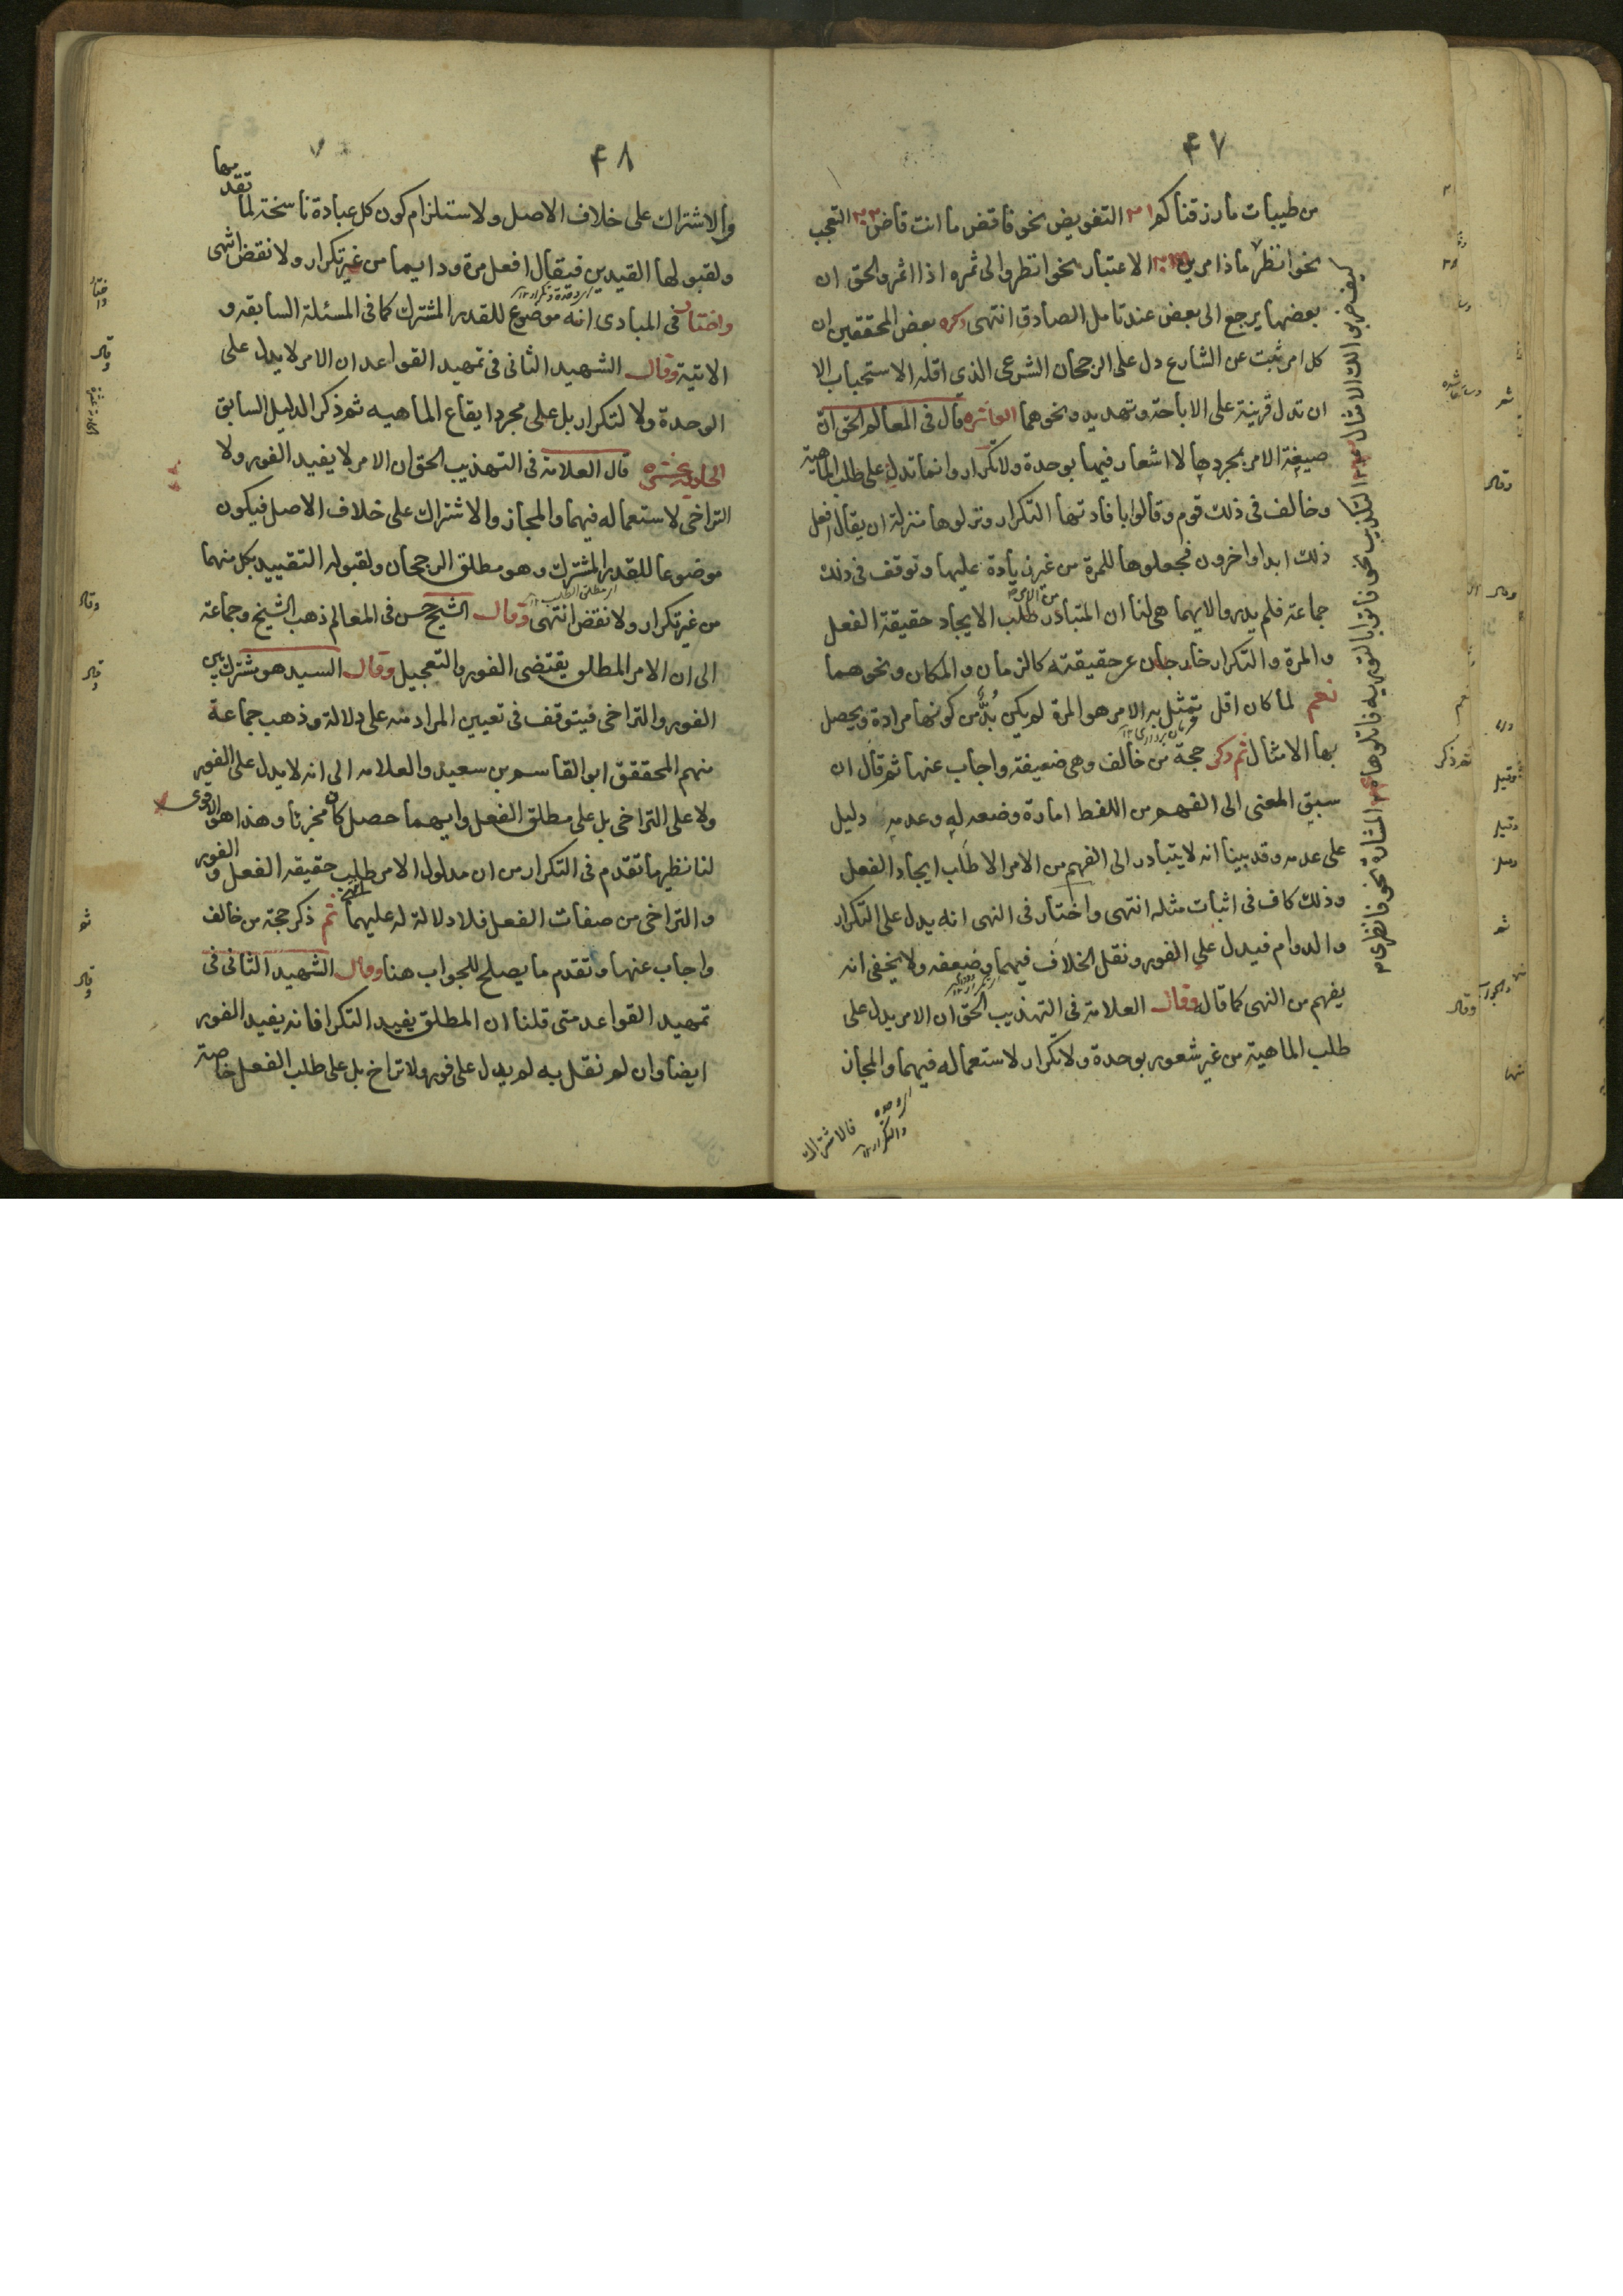 ٤٧
من طيبات ما رزقناكم ٢١ التفويض نحو فاقض ما انت قاض ٢٢ التعجب
نحو انظر ماذا مرين ٢٣ الاعتبار نحو انظروا الى ثمره اذا اثمر والحق ان
بعضها يرجع الى بعض عند تامل الصادق انتهى ذكره بعض المحققين ان
كل امر ثبت عن الشارع دل على الرجحان الشرعى الذى اقله الاستحباب الا
ان تدل قرينة على الاباحة وتهديد ونحوهما العاشره قال فى المعالم الحق ان
صيغة الامر بمجردها لا اشعار فيها بوحدة ولا تكرار وانما تدل على طلب الماهية
وخالف فى ذلك قوم وقالوا بافادتها التكرار ونزلوها منزلة ان يقال افعل
ذلك ابدا واخرون فجعلوها للمرة من غير زيادة عليها وتوقف فى ذلك
جماعة فلم يدروا لايهما هى لنا ان المتبادر من الامر طلب الايجاد حقيقة الفعل
والمرة والتكرار خارجان عن حقيقته كالزمان والمكان ونحوهما
نعم لما كان اقل تمثل به الامر هو المرة لم يكن بد من كونها مرادة ويحصل
بها الامتثال ثم ذكر حجة من خالف وهى ضعيفة واجاب عنها ثم قال ان
سبق المعنى الى الفهم من اللفظ امارة وضعه له وعدمه دليل
على عدمه وقد بينا انه لا يتبادر الى الفهم من الامر الا طلب ايجاد الفعل
وذلك كاف فى اثبات مثله انتهى واختار فى النهى انه يدل على التكرار
والدوام فيدل على الفور ونقل الخلاف فيهما وضعفه ولا يخفى انه
يفهم من النهى كما قاله وقال العلامة فى التهذيب الحق ان الامر يدل على
طلب الماهية من غير شعور بوحدة ولا تكرار لاستعماله فيهما والمجاز
فالاشتراك
٤٨
والاشتراك على خلاف الاصل ولاستلزام كون كل عبادة ناسخة لما تقدمها
ولقبولها القيدين فيقال افعل مرة ودايما من غير تكرار ولا نقض انتهى
واختار فى المبادى انه موضوع للقدر المشترك كما فى المسئلة السابقه و
الاتية وقال الشهيد الثانى فى تمهيد القواعد ان الامر لا يدل على
الوحدة ولا لتكرار بل على مجرد ايقاع الماهيه ثم ذكر الدليل السابق
الحادية عشره قال العلامة فى التهذيب الحق ان الامر لا يفيد الفور ولا
التراخى لاستعماله فيهما والمجاز والاشتراك على خلاف الاصل فيكون
موضوعا للقدر المشترك وهو مطلق الرجحان ولقبوله التقييد بكل منهما
من غير تكرار ولا نقض انتهى وقال الشيخ حسن فى المعالم ذهب الشيخ وجماعة
الى ان الامر المطلق يقتضى الفور والتعجيل وقال السيد هو مشترك بين
الفور والتراخى فيتوقف فى تعيين المراد منه على دلالة وذهب جماعة
منهم المحقق ابو القاسم بن سعيد والعلامه الى انه لا يدل على الفور
ولا على التراخى بل على مطلق الفعل وايهما حصل كان مجزئا وهذا هو الاقوى
لنا نظير ما تقدم فى التكرار من ان مدلول الامر طلب حقيقه الفعل والفور
والتراخى من صفات الفعل فلا دلالة له عليهما انتهى ثم ذكر حجة من خالف
واجاب عنها وتقدم ما يصلح للجواب هنا وقال الشهيد الثانى فى
تمهيد القواعد متى قلنا ان المطلق يفيد التكرار فانه يفيد الفور
ايضا وان لم نقل به لم يدل على فور ولا تراخ بل على طلب الفعل خاصة